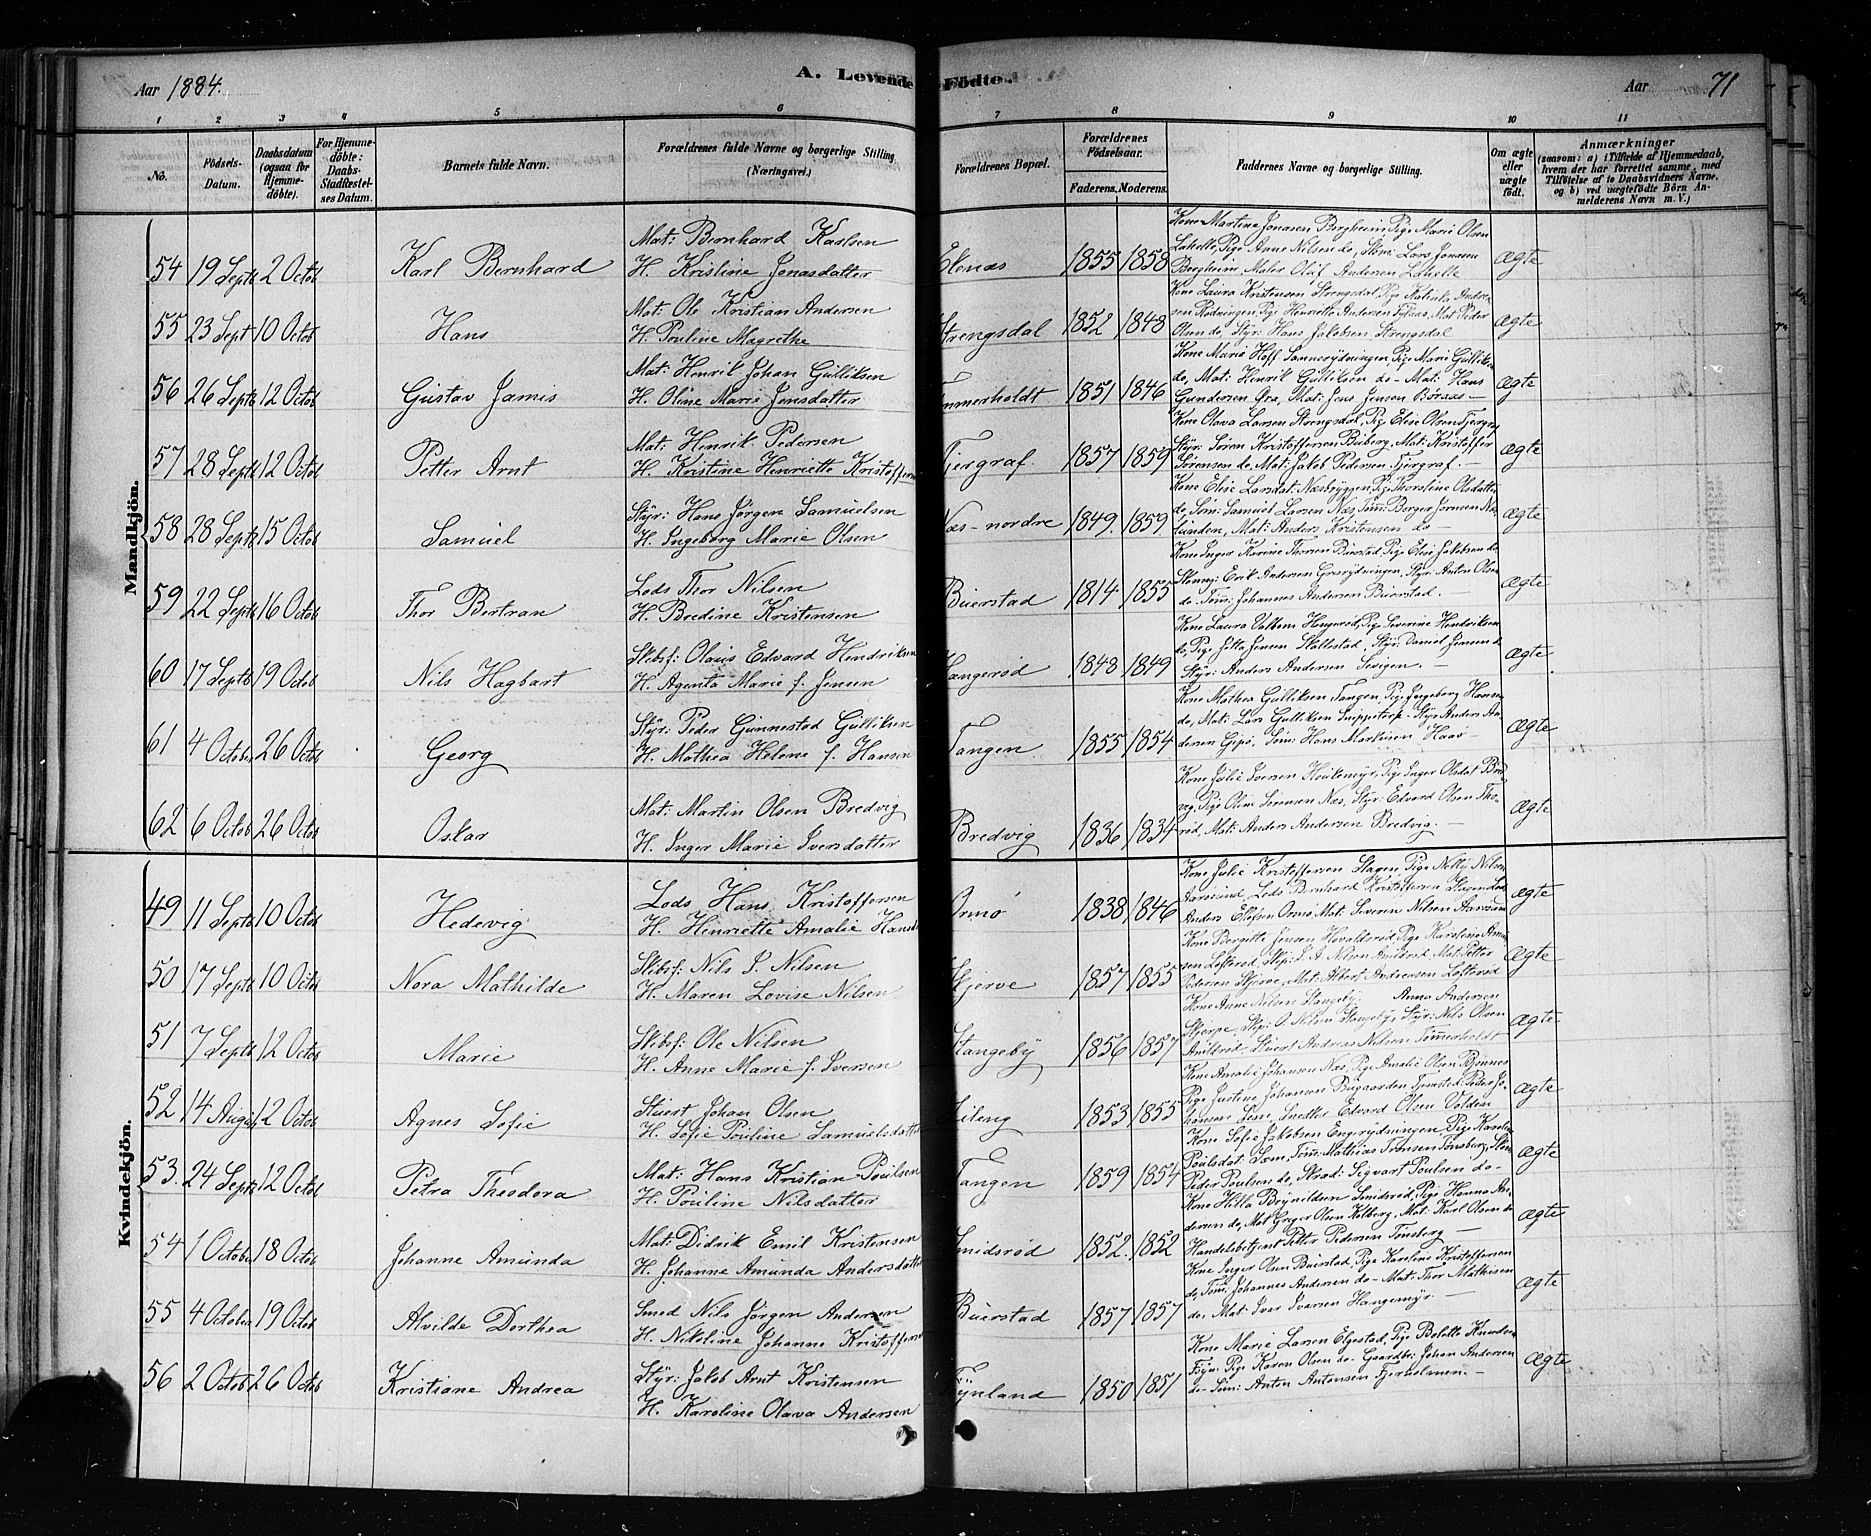 Aar 1884.
A. Levende Födte.
Aar 71
1 2 3 4 5 6 7 8 9 10 11
No.
Födsels-Datum.
Daabsdatum (ogsaa for Hjemme-döbte).
For Hjemme-döbte: Daabs-Stadfæstelses Datum.
Barnets fulde Navn.
Forældrenes fulde Navne og borgerlige Stilling. (Næringsvei.)
Forældrenes Bopæl.
Forældrenes Födselsaar.
Faderens. Moderens.
Faddernes Navne og borgerlige Stilling.
Om ægte eller uægte födt.
Anmærkninger
(saasom: a) i Tilfælde af Hjemmedaab, hvem der har forrettet samme, med Tilföielse af to Daabsvidners Navne, og b) ved uægtefödte Börn Anmelderens Navn m. V.)
Mandkjön.
54 19 Septb 2 Octob Karl Bernhard
Mat: Bernhard Karlsen
H. Kristine Jonasdatter
Elenæs 1855 1858
Kone Martine Jonasen Bergheim, Pige Marie Olsen
Lahelle, Pige Anne Nilsen do, Skom: Lars Jonasen
Bergheim, Maler Oluf Andersen Lahelle
Ægte
55 23 Sept 10 Octob Hans
Mat: Ole Kristian Andersen
H. Pouline Magrethe
Strengsdal 1852 1848
Kone Laura Kristensen Strengsdal, Pige Katinka Andersen
Rödningen, Pige Henriette Andersen, Mat: Peder
Olsen do, Styr: Hans Jakobsen Strengsdal
Ægte
56 26 Septb 12 Octob Gustav Jamis
Mat: Henrik Johan Gulliksen
H. Oline Marie Jensdatter
Tömmerholdt 1851 1846
Kone Marie Hoff Sannerydningen, Pige Marie Gulliksen
do, Mat: Henrik Gulliksen do – Mat: Hans
Gundersen Öra, Mat: Jens Jensen Boraas –
Ægte
57 28 Septb 12 Octob Petter Arnt
Mat: Henrik Pedersen
H. Kristine Henriette Kristoffersen
Tjergraf 1857 1859
Kone Olava Larsen Strengsdal, Pige Elise Olsen Tjergraf
Styr: Sören Kristoffersen Buberg, Mat: Kristoffer
Sörensen do, Mat: Jakob Pedersen Tjergraf. –
Ægte
58 28 Septb 15 Octob Samuel
Styr: Hans Jörgen Samuelsen
H. Ingeborg Marie Olsen
Næs-nordre 1849. 1859
Kone Elise Larsdat: Næsbryggen, Pige Thoroline Olsdatter
do, Söm: Samuel Larsen Næs, Töm: Borger Jörensen
lunden, Mat: Anders Kristensen do –
Ægte
59 22 Septb 16 Octob Thor Bertran
Lods Thor Nilsen
H. Bredine Kristensen
Buerstad 1814 1855
Kone Inger Karine Thorsen Buerstad, Pige Elise Jakobsen do
Erik Andersen Grasrydningen, Styr: Anton Olsen
do. Töm: Johannes Andersen Buerstad. –
Ægte
60 17 Septb 19 Octob Nils Hagbart
Skibsf: Olaus Edvard Hendriksen
H. Agenta Marie f. Jensen
Hengeröd 1848 1849
Kone Laura Hengeröd, Pige Severine Hendriksen
do, Pige Jensen Skallestad, Styr: Daniel Jensen do
Styr: Anders Andersen. –
Ægte
61 4 October 26 Octob Georg
Styr: Peder Gunnestad Gulliksen
H. Mathea Helene f. Hansen
Tangen 1855 1854
Kone Mathea Gulliksen Tangen, Pige Ingeborg Hansen
do, Mat: Lars Gulliksen, Styr: Anders Andersen
Gipö, Söm: Hans Markusen Haaö –
Ægte
62 6 Octob 26 Octob Oskar
Mat: Martin Olsen Bredvig
H. Inger Marie Iversdatter
Bredvig 1836 1834
Kone Julie Iversen, Pige Inger Olsdat Bredvig,
Pige Olin Sörensen Næs, Styr: Edvard Olsen Thoröd,
Mat: Anders Andersen Bredvig. –
Ægte
Kvindekjön.
49 11 Septb 10 Octob Hedevig
Lods Hans Kristoffersen
H. Henriette Amalie
Ormö 1838 1846
Kone Julie Kristoffersen Stagen, Pige Nelly Nilsen
Aarsund, Lods Bernhard Kristoffersen Stagen, Lods
Anders Ellefsen Ormö, Mat: Severen Nilsen Aarsund
Ægte
50 17 Septb 10 Octob Nora Mathilde
Skibsf: Nils S. Nilsen
H. Maren Lovise Nilsen
Skjerve 1857 1855
Kone Bergitte Jensen Hovaldsröd, Pige Karolene
Lofteröd, Skip: S. A. Nilsen, Mat: Petter
Pedersen Skjerve, Mat: Albert Andreasen Lofteröd
Ægte
51 7 Septb 12 Octob Marie
Skibsf: Ole Nilsen
H. Anne Marie f. Iversen
Stangeby 1856 1857
Kone Anne Nilsen Stangeby, Anna Andersen
Skjerve, Skip: O. Nilsen Stangeby, Styr: Nils Olsen
Stuert Andreas Nilsen Tömmerholdt
Ægte
52 14 August 12 Octob Agnes Sofie
Stuert Johan Olsen
H. Sofie Pouline Samuelsdatter
Lileng 1853 1855
Kone Amalie Johansen Næs, Pige Amalie Olsen Bjönnes
Pige Justine Johansen Bugaarden, Peder Johansen
Sem, Snedker Edvard Olsen Volden
Ægte
53. 24 Septb 12 Octob Petra Theodora
Mat: Hans Kristian Poulsen
H. Pouline Nilsdatter
Tangen 1859 1854
Kone Sofie Jakobsen Engerydningen, Pige Karoline
Poulsdat: Sæm, Töm: Mathias Tönsberg,
Peder Poulsen do, Skrad: Sigvart Poulsen do –
Ægte
54 1 October 18 Octob Johanne Amunda
Mat: Didrik Emil Kristensen
H. Johanne Amunda Andersdatter
Smidsröd 1852. 1852
Kone Hilla Brynildsen Smidsröd, Pige Hanna Andersen
do, Mat: Greger Olsen Kolberg, Mat: Karl Olsen do
Handelsbetjent Petter Pedersen Tönsberg –
Ægte
55 4 October 19 Octob Alvilde Dorthea
Smed Nils Jörgen Andersen
H. Nikoline Johanne Kristoffersen
Buerstad 1857 1857
Kone Inger Olsen Buerstad, Pige Karoline Kristoffersen
do, Töm: Johannes Andersen do – Mat: Thor Mathisen
do, Mat: Ivar Iversen Hangemyr –
Ægte
56 2 Octob 26 Octob Kristiane Andrea
Styr: Jakob Arnt Kristensen
H. Karoline Olava Andersen
Föynland 1850 1851
Kone Marie Larsen Elgestad, Pige Bolette Knudsen
Föyn, Pige Karen Olsen do – Gaardbr: Johan Andersen
do – Söm: Anton Antonsen Fjerholmen. –
Ægte